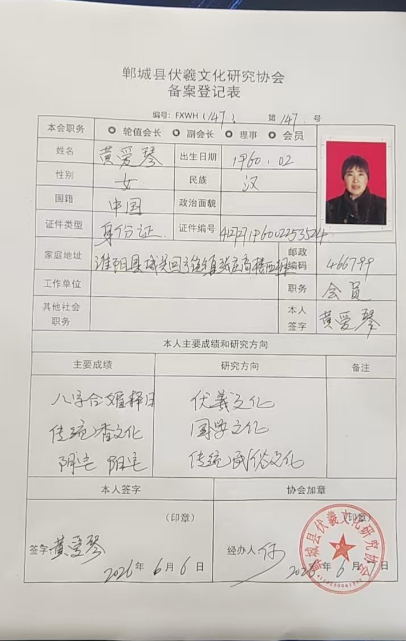 郸城县伏羲文化研究协会
备案登记表
编号: FXWH (147) 第 147 号
本会职务 轮值会长 副会长 理事 会员
姓名 黄爱琴 出生日期 1960.02
性别 女 民族 汉
国籍 中国 政治面貌
证件类型 身份证 证件编号
家庭地址 淮阳县 邮政编码 466799
工作单位 职务 会员
其他社会职务 本人签字 黄爱琴
本人主要成绩和研究方向
主要成绩 研究方向 备注
八字合婚择日 伏羲文化
传统香文化 国学文化
阴宅 阳宅 传统民俗文化
本人签字 协会加章
(印章) (印章)
签字 黄爱琴 经办人
2026年6月6日 2026年6月6日
郸城县伏羲文化研究协会